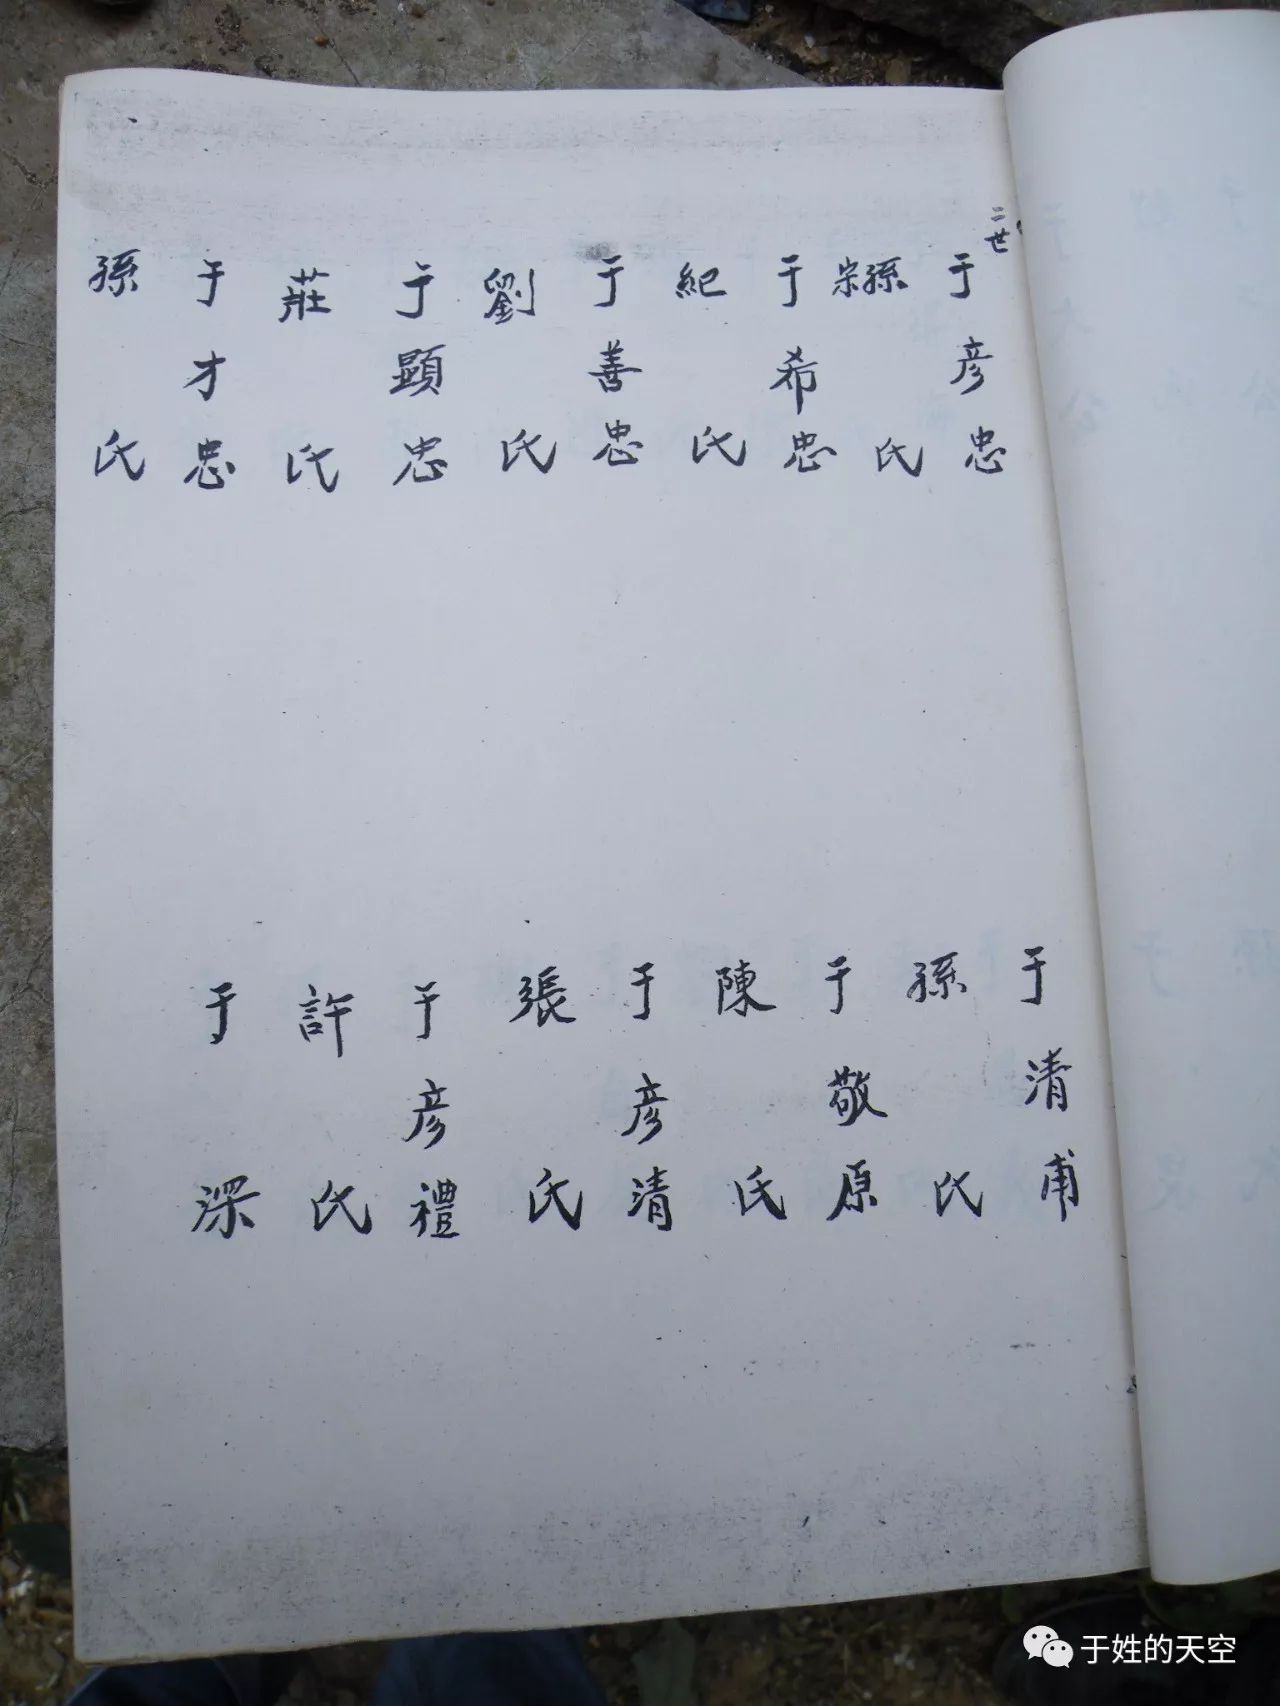 二世
于彦忠
宗孫氏
于希忠
紀氏
于善忠
劉氏
于顯忠
莊氏
于才忠
孫氏
于清甫
孫氏
于敬原
陳氏
于彦清
張氏
于彦禮
許氏
于深
于姓的天空